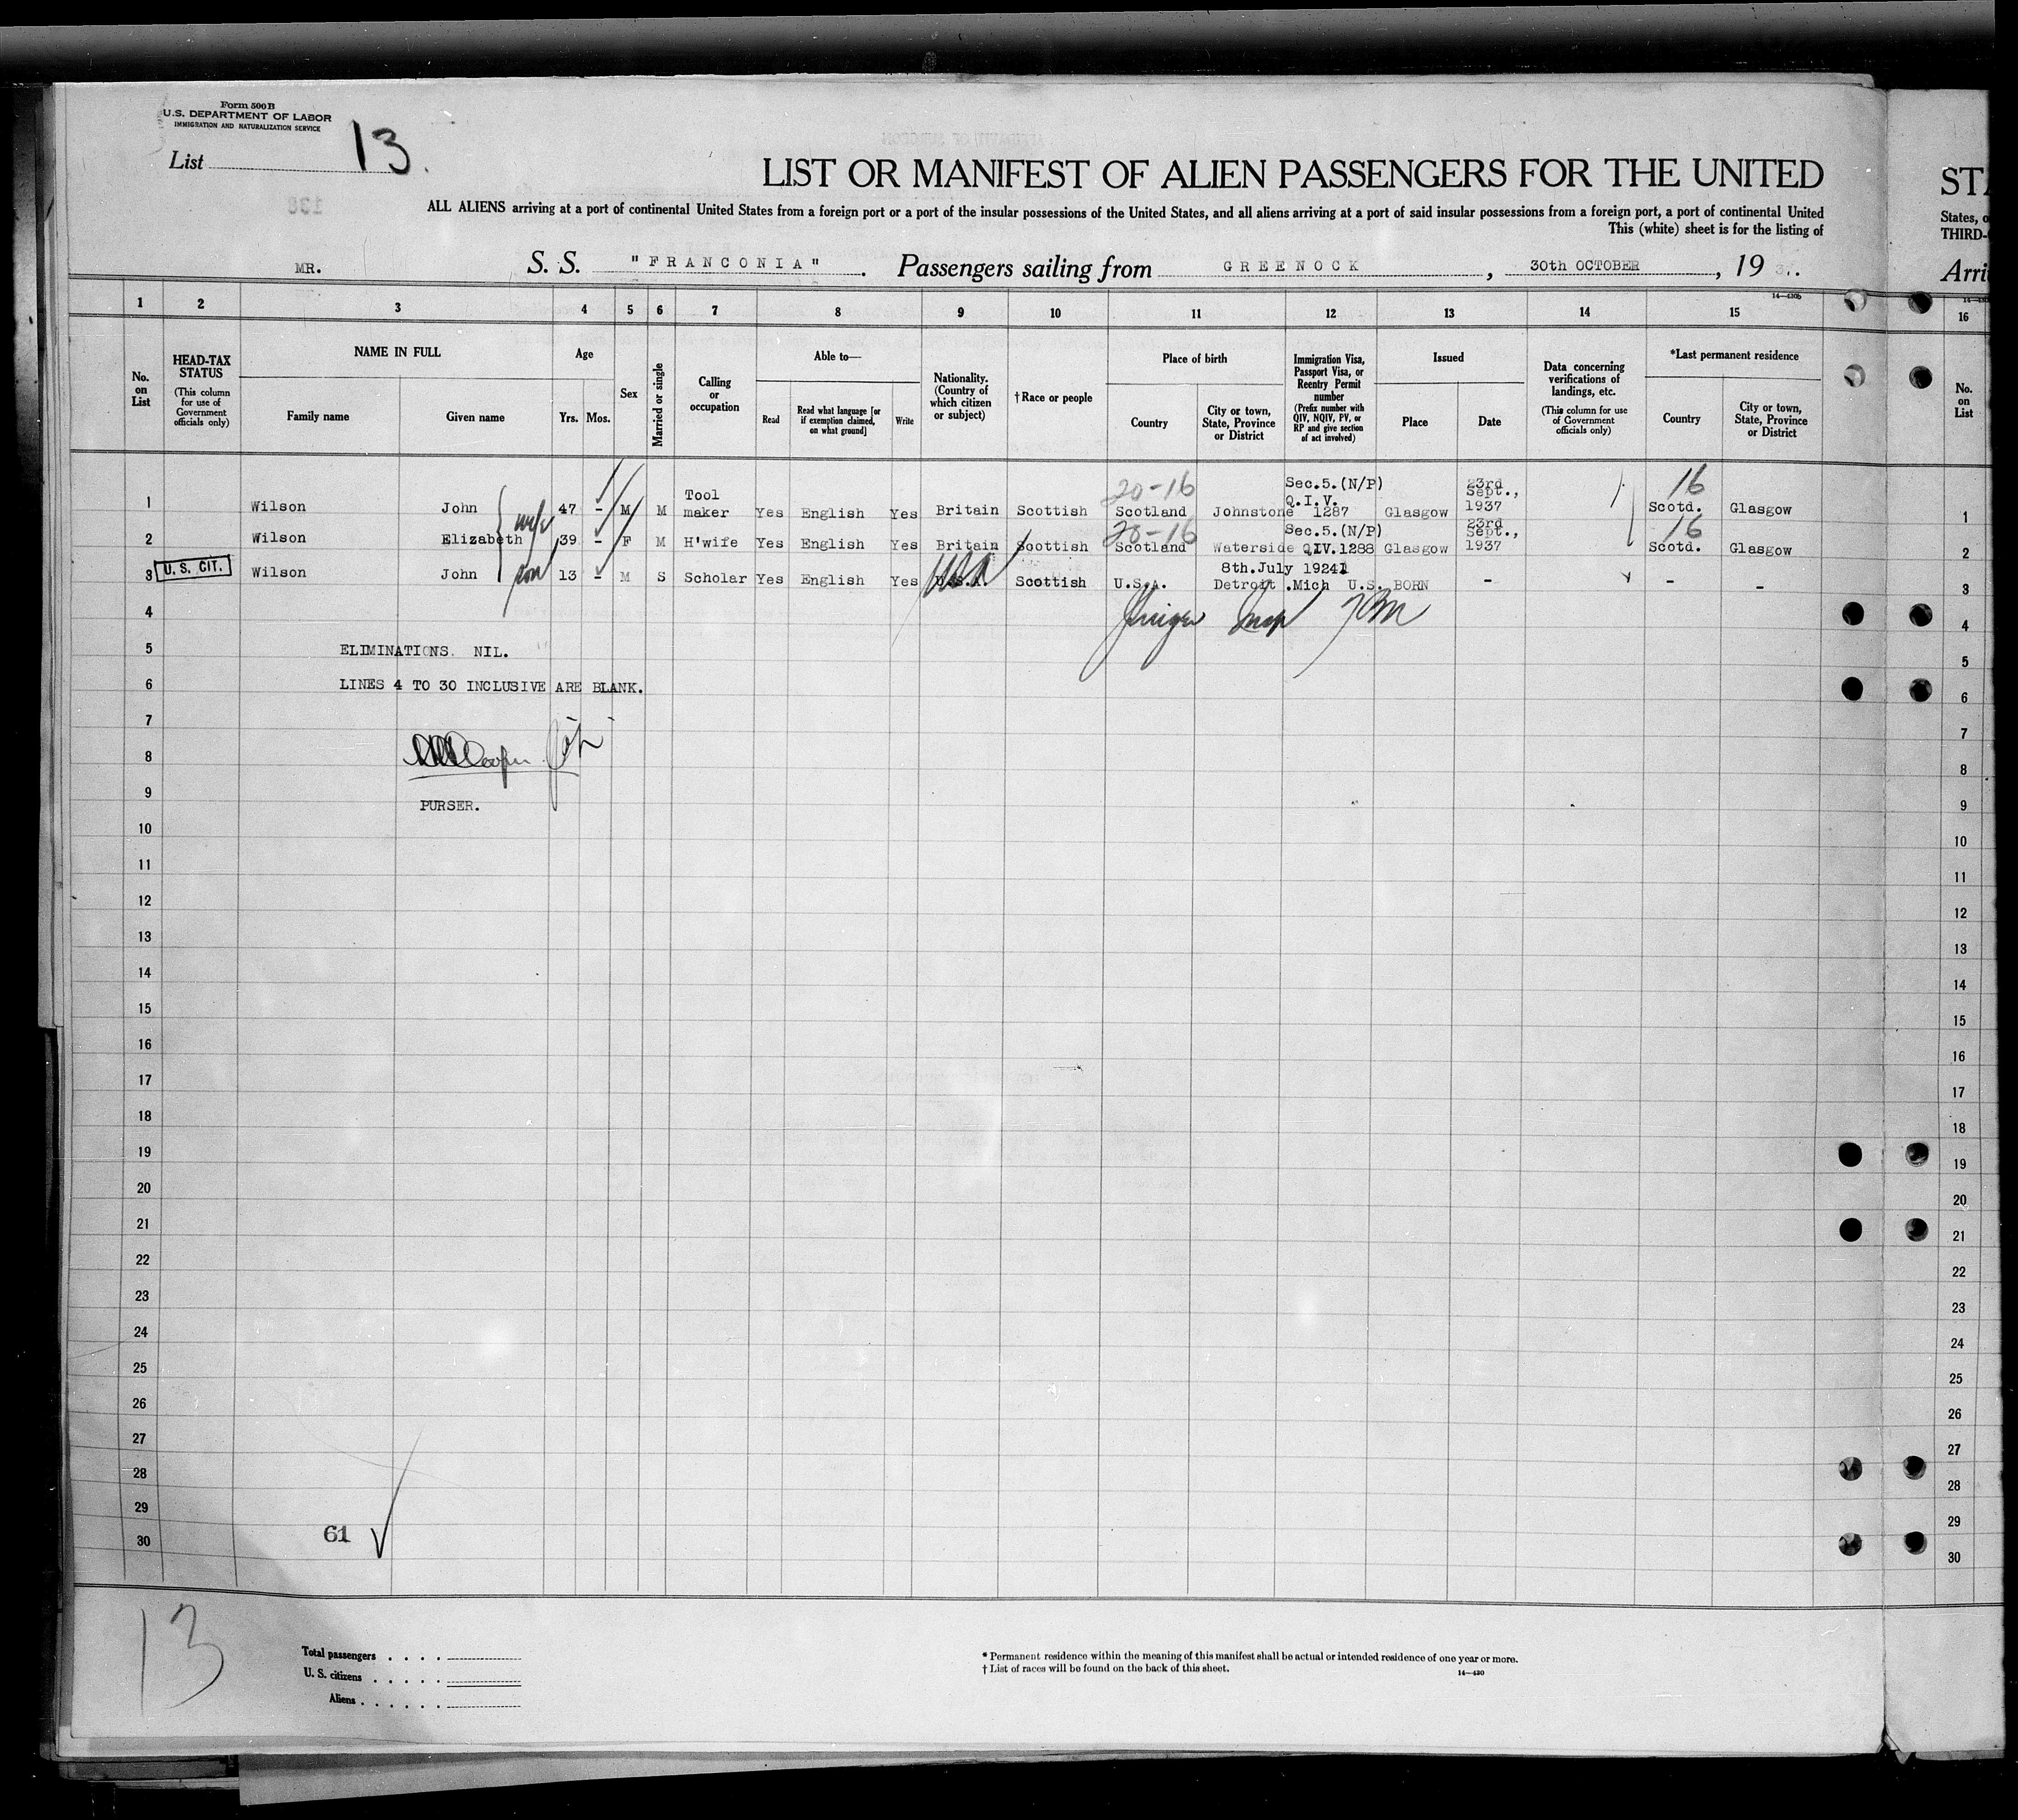 Form 500 B
U.S. DEPARTMENT OF LABOR
IMMIGRATION AND NATURALIZATION SERVICE
List 13.
LIST OR MANIFEST OF ALIEN PASSENGERS FOR THE UNITED
ALL ALIENS arriving at a port of continental United States from a foreign port or a port of the insular possessions of the United States, and all aliens arriving at a port of said insular possessions from a foreign port, a port of continental United
This (white) sheet is for the listing of
MR. S. S. "FRANCONIA". Passengers sailing from GREENOCK, 30th OCTOBER, 19 37.
STA
States, o
THIRD-
Arri
1 2 3 4 5 6 7 8 9 10 11 12 13 14 15 16
14—430b
No. on List
HEAD-TAX STATUS
(This column for use of Government officials only)
NAME IN FULL
Family name Given name
Age
Yrs. Mos.
Sex
Married or single
Calling or occupation
Able to—
Read
Read what language [or if exemption claimed, on what ground]
Write
Nationality. (Country of which citizen or subject)
† Race or people
Place of birth
Country
City or town, State, Province or District
Immigration Visa, Passport Visa, or Reentry Permit number
(Prefix number with QIV, NQIV, PV, or RP and give section of act involved)
Issued
Place Date
Data concerning verifications of landings, etc.
(This column for use of Government officials only)
*Last permanent residence
Country
City or town, State, Province or District
No. on List
20-16 Sec.5.(N/P) 23rd Sept., 16
1 Wilson John 47 - M M Tool maker Yes English Yes Britain Scottish Scotland Johnstone Q.I.V. 1287 Glasgow 1937 Scotd. Glasgow 1
wife 20-16 Sec.5.(N/P) 23rd Sept., 16
2 Wilson Elizabeth 39 - F M H'wife Yes English Yes Britain Scottish Scotland Waterside QIV.1288 Glasgow 1937 Scotd. Glasgow 2
8th.July 1924
3 U. S. CIT. Wilson John son 13 - M S Scholar Yes English Yes U.S.A. Scottish U.S.A. Detroit .Mich U.S. BORN - - - 3
4 4
5 ELIMINATIONS. NIL. 5
6 LINES 4 TO 30 INCLUSIVE ARE BLANK. 6
7 7
8 8
9 PURSER. 9
10 10
11 11
12 12
13 13
14 14
15 15
16 16
17 17
18 18
19 19
20 20
21 21
22 22
23 23
24 24
25 25
26 26
27 27
28 28
29 29
30 61 30
13
Total passengers . . . .
U. S. citizens . . . . .
Aliens . . . . . .
* Permanent residence within the meaning of this manifest shall be actual or intended residence of one year or more.
† List of races will be found on the back of this sheet.
14—430